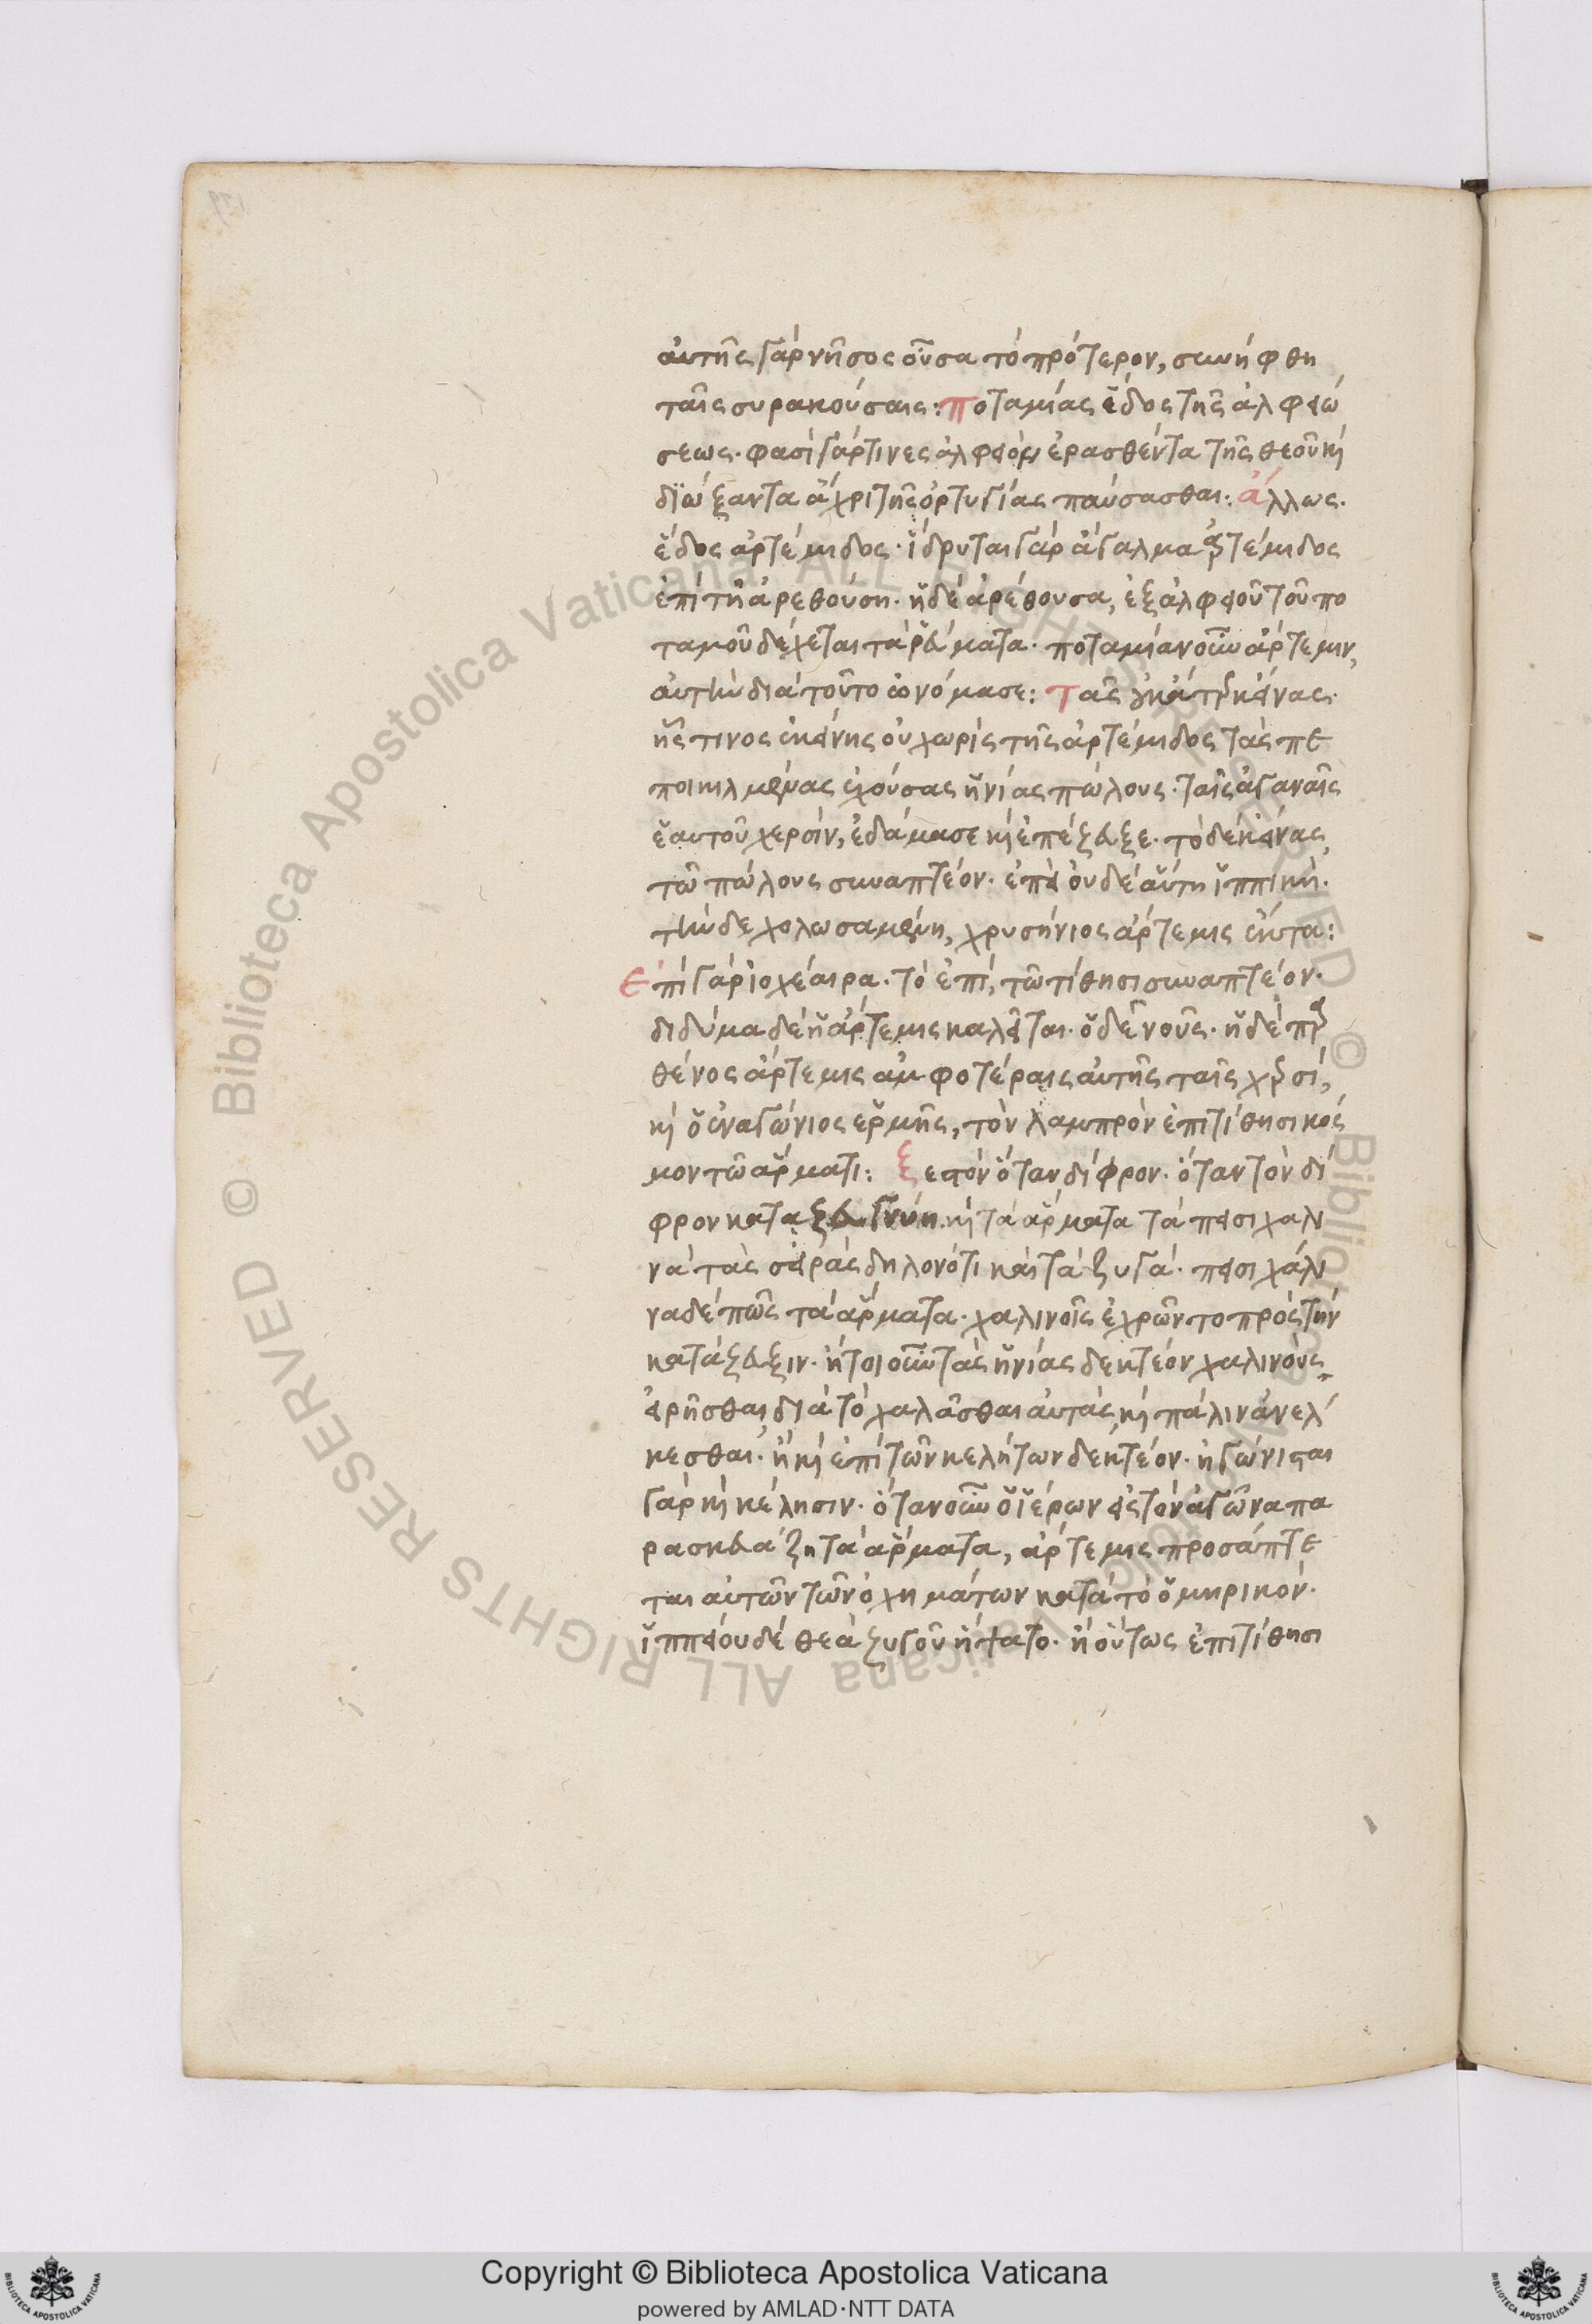 αὐτῆς γὰρ νῆσος οὖσα τὸ πρότερον, συνήφθη
ταῖς συρακούσαις: ποταμίας ἕδος τῆς ἀλφειώ
σεως· φασὶ γάρ τινες ἀλφειὸν ἐρασθέντα τῆς θεοῦ κὶ
διώξαντα ἄχρι τῆς ὀρτυγίας παύσασθαι: ἄλλως·
ἕδος ἀρτέμιδος· ἵδρυται γὰρ ἄγαλμα ἀρτέμιδος
ἐπὶ τῆ ἀρεθούση· ἡ δὲ ἀρέθουσα, ἐξ ἀλφειοῦ τοῦ πο
ταμοῦ δέχεται τὰ ῥεύματα· ποταμίαν οὖν ἄρτεμιν,
αὐτὴν διὰ τοῦτο ὠνόμασε: τᾶς οὐκ ἄτερ κείνας·
ἧς τινος ἐκείνης οὐ χωρὶς τῆς ἀρτέμιδος τὰς πε
ποικιλμένας ἐχούσας ἡνίας πώλους· ταῖς ἀγαναῖς
ἑαυτοῦ χερσὶν, ἐδάμασε κὶ ἐπέζευξε· τὸ δὲ κείνας,
τῶ πώλους συναπτέον· ἐπεὶ οὐδὲ αὕτη ἱππική·
τὴν δὲ χολωσαμένη, χρυσήνιος ἄρτεμις ἔκτα:
ἐπὶ γὰρ ἰοχέαιρα· τὸ ἐπὶ, τῶ τίθησι συναπτέον·
διδύμα δὲ ἡ ἄρτεμις καλεῖται· ὁ δὲ νοῦς· ἡ δὲ παρ
θένος ἄρτεμις ἀμφοτέραις αὐτῆς ταῖς χερσὶ,
κὶ ὁ ἐναγώνιος ἑρμῆς, τὸν λαμπρὸν ἐπιτίθησι κόσ
μον τῶ ἅρματι: ξεστὸν ὅταν δίφρον· ὅταν τὸν δί
φρον καταζευγνύη. κὶ τὰ ἅρματα τὰ πεισιχάλι
να τὰς σειρὰς δηλονότι καὶ τὰ ζυγά· πεισιχάλι
να δέ πως τὰ ἅρματα· χαλινοῖς ἐχρῶντο πρὸς τὴν
κατάζευξιν· ἤτοι οὖν τὰς ἡνίας δεκτέον χαλινοὺς
εἰρῆσθαι, διὰ τὸ χαλᾶσθαι αὐτὰς, κὶ πάλιν ἀνέλ
κεσθαι· ἢ κὶ ἐπὶ τῶν κελήτων δεκτέον· ἠγώνισται
γὰρ κὶ κέλησιν· ὅταν οὖν ὁ ἱέρων εἰς τὸν ἀγῶνα πα
ρασκευάζη τὰ ἅρματα, ἄρτεμις προσάπτε
ται αὐτῶν τῶν ὀχημάτων κατὰ τὸ ὁμηρικόν·
ἱππείου δὲ θεὰ ζυγοῦ ἥψατο· ἢ οὕτως ἐπιτίθησι
Copyright © Biblioteca Apostolica Vaticana
powered by AMLAD·NTT DATA